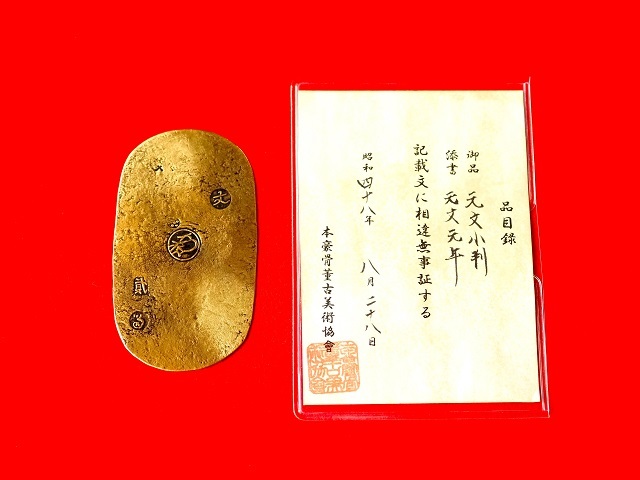 品目録
御品 元文小判
添書 元文元年
記載文に相違無事証する
昭和四十八年 八月二十八日
本豪骨董古美術協會
文